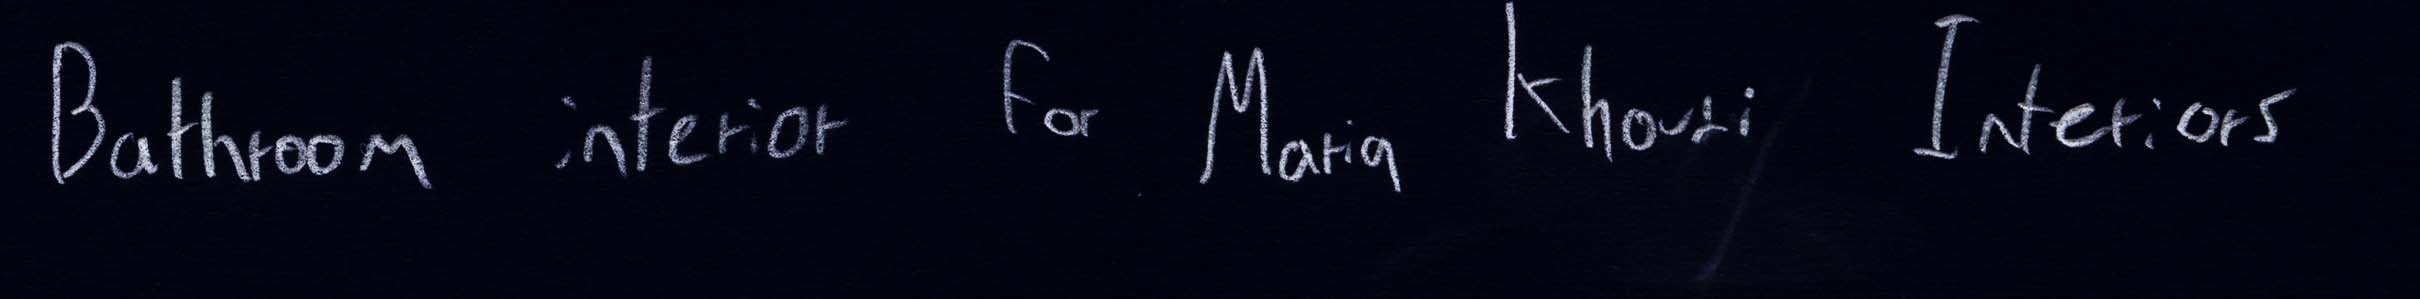 Bathroom interior for Maria Khouri Interiors